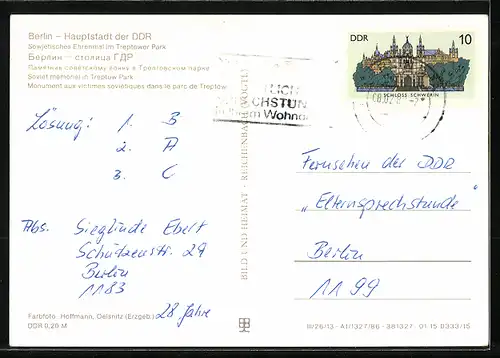 Berlin – Hauptstadt der DDR
Sowjetisches Ehrenmal im Treptower Park
Берлин — столица ГДР
Памятник советскому воину в Трептовском парке
Soviet memorial in Treptow Park
Monument aux victimes soviétiques dans le parc de Treptow
DDR 10
SCHLOSS SCHWERIN
LICH
CHSTUN
im Wohn
Lösung: 1. B
2. A
3. C
Abs. Sieglinde Ebert
Schützenstr. 29
Berlin
1183
28 Jahre
Fernsehen der DDR
„Elternsprechstunde"
Berlin
1199
BILD UND HEIMAT · REICHENBACH (VOGTL)
Farbfoto: Hoffmann, Oelsnitz (Erzgeb.)
DDR 0,20 M
III/26/13 · A1/1327/86 · 381327 01 15 0333/15